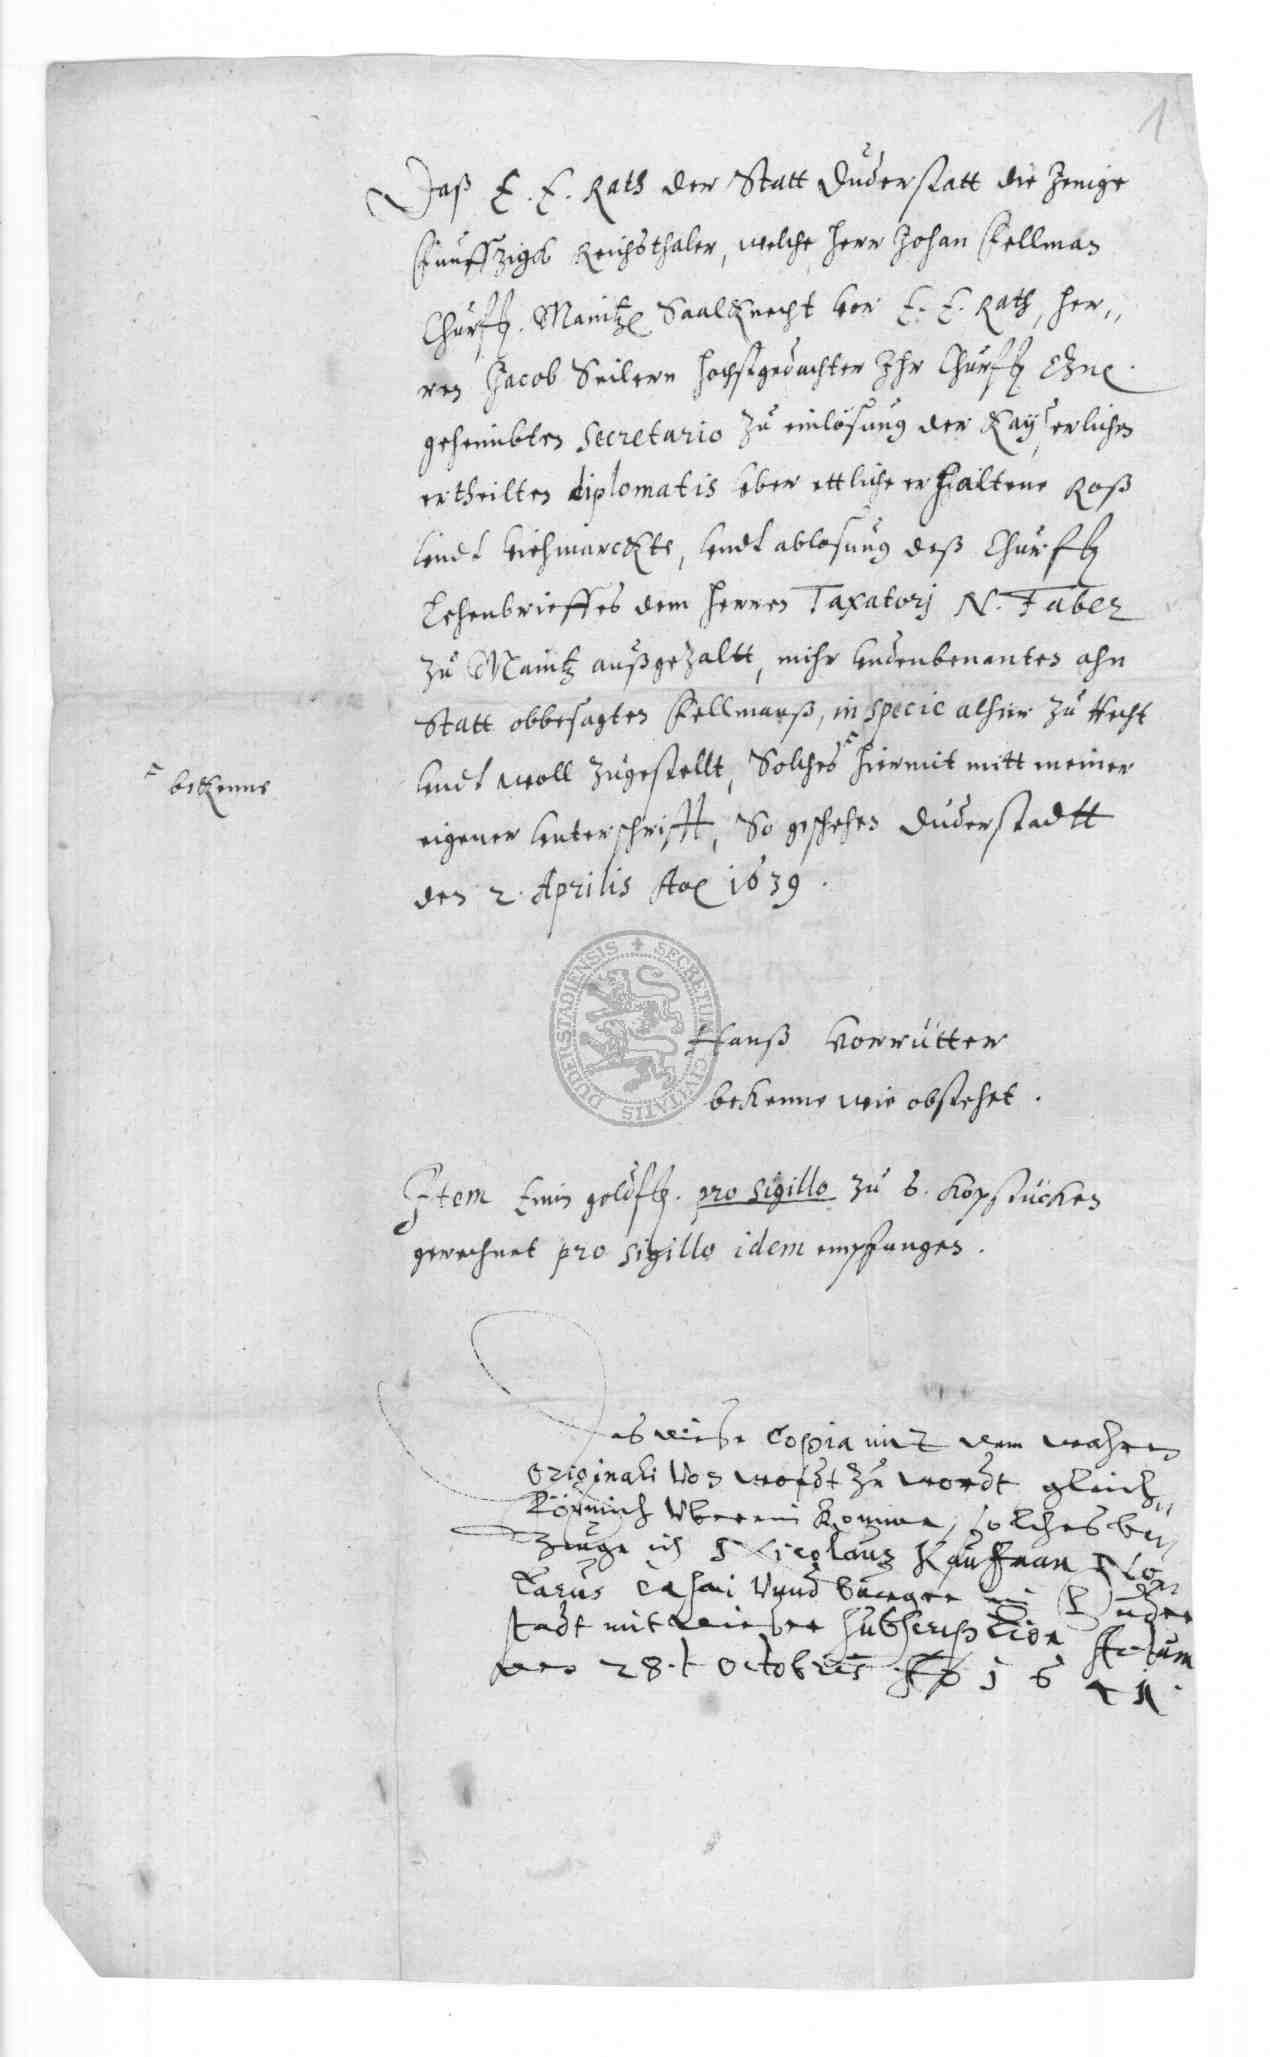 1
Daß E. E. Rath der Statt Duderstatt die Jenige
funffzigk Reichsthaler, welche herr Johan Fellman
Churff. Maintz Saalknecht vor E. E. Rath, her„
ren Jacob Seilern hochstgedachter Ihr Churff
geheimbten Secretario zu einlösung der Kayserlichen
ertheilten diplomatis vber ettliche erhaltene Roß
vndt Viehmarckte, vndt ablosung deß Churff
Lehenbrieffes dem herren Taxatorj N. Faber
zu Maintz außgezaltt, mihr vndenbenanten ahn
Statt obbesagten Fellmanß, in specie alhier zu Recht
vndt woll zugestellt, Solches ⌜ hiermit mitt meiner
⌜ bekenne
eigener vnterschrifft, So geschehen Duderstadtt
den 2. Aprilis Ao 1639.
SECRETUM CIVITATIS DUDERSTADIENSIS
Hanß Vorrütter
bekenne wie obstehet.
Item Einn goldfl. pro sigillo zu 6. Kopstücken
gerechnet pro sigillo idem empfangen.
Das diese Copia mit dem wahren
Originali von wordt zu wordt gleich„
förmich vberein komme, solches be„
zeuge ich Nicolaus Kauffman No„
tarius Vnnd burger in Duder
stadt mit dieser subscription Actum
den 28.t Octobris Ao 1641.